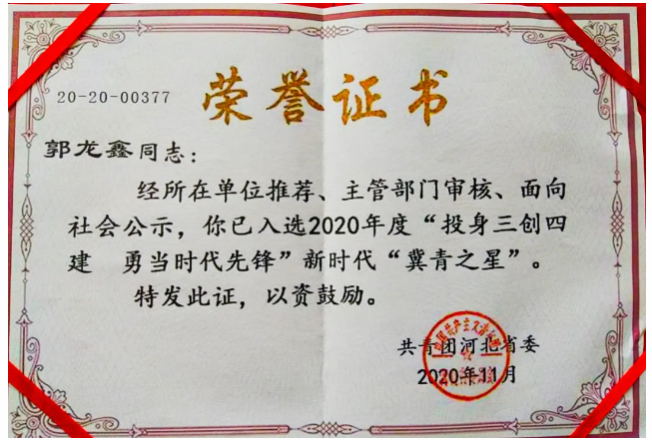 荣誉证书
20-20-00377
郭龙鑫同志：
经所在单位推荐、主管部门审核、面向
社会公示，你已入选2020年度“投身三创四
建　勇当时代先锋”新时代“冀青之星”。
特发此证，以资鼓励。
共青团河北省委
2020年11月